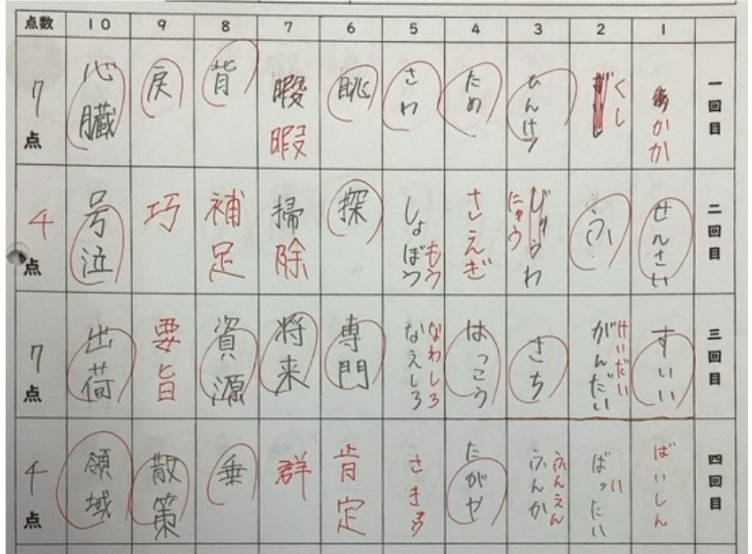 点数 10 9 8 7 6 5 4 3 2 1
一回目
かか
くし
ひんけつ
ため
さわ
眺
暇 暇
背
戻
心臓
7点
二回目
せんさい
じゅうわ
にゅう
さえぎ
しょぼつ
もう
探
掃除
補足
巧
号泣
4点
三回目
すいい
がんだい
けいだい
さち
はっこう
なえしろ
なわしろ
専門
将来
資源
要旨
出荷
7点
四回目
ばいしん
ばったい
い
ふんか
ふんえん
たがや
肯定
群
垂
散策
領域
4点